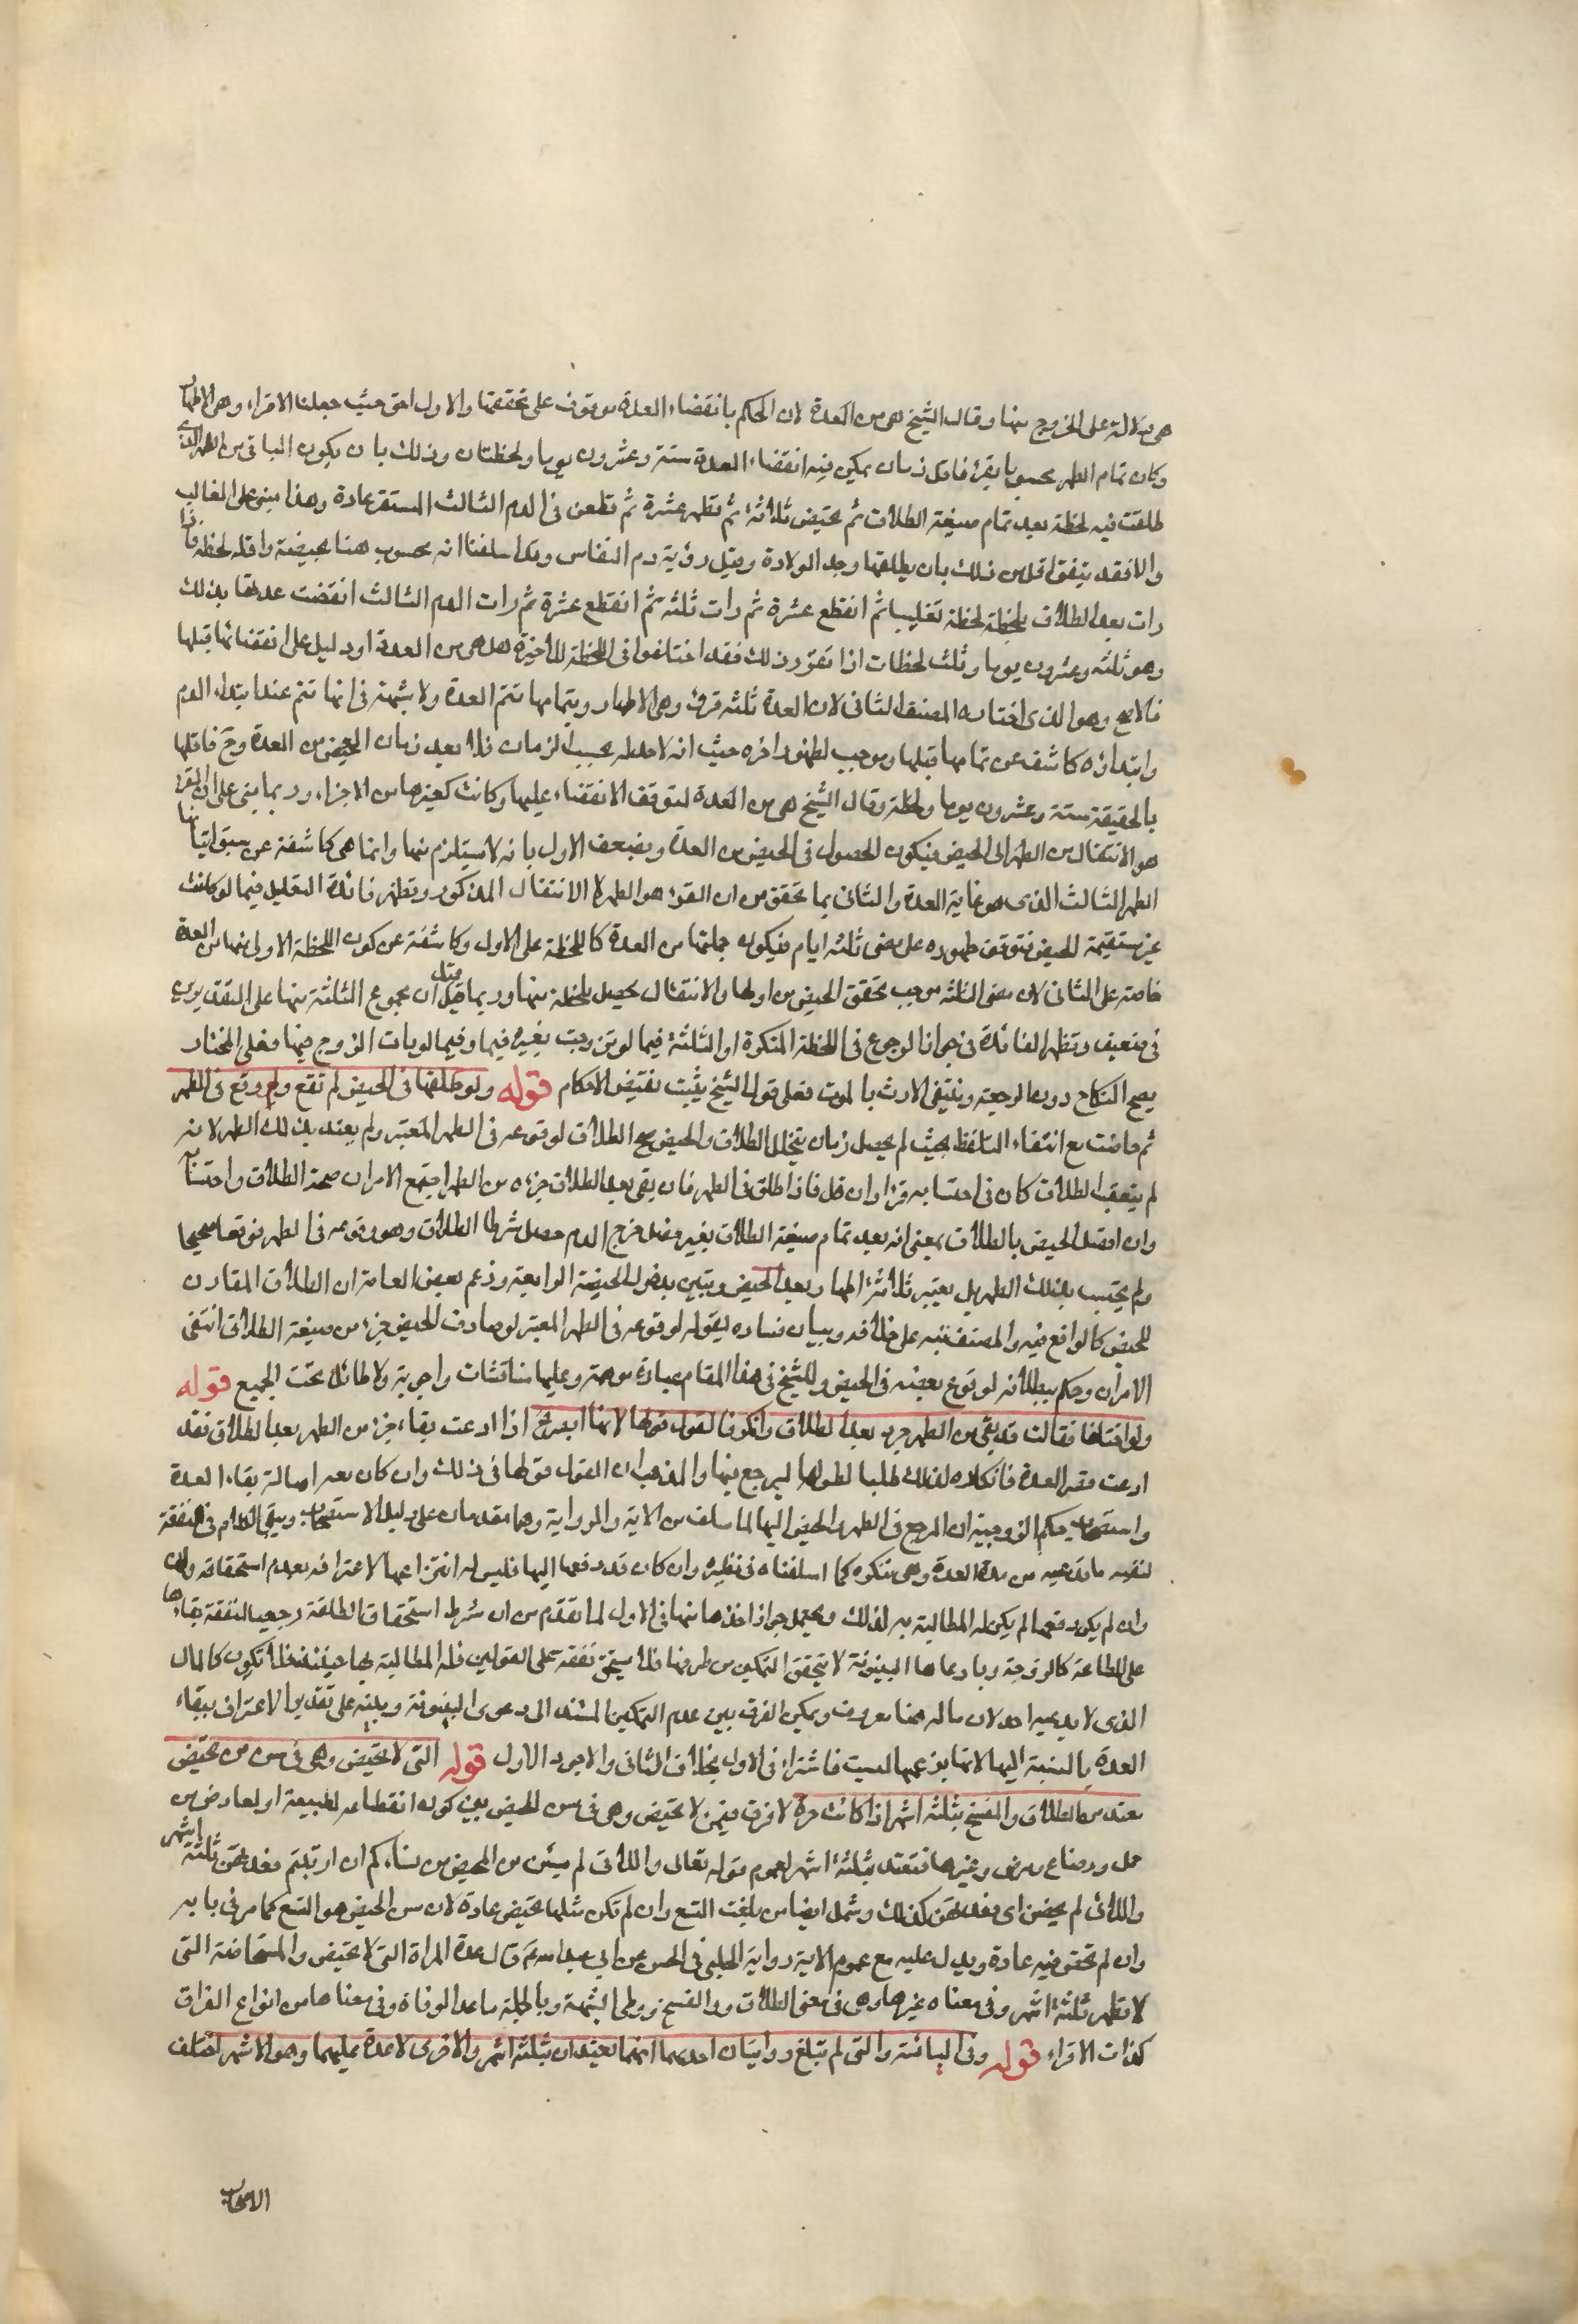 هى دلالة على الخروج منها وقال الشيخ هى من العدة لان الحكم بانقضاء العدة موقوف على تحققها والاول احق حيث جعلنا الاقراء وهى الاطهار
وكان تمام الطهر محسوبا بقرء فاقل زمان يمكن فيه انقضاء العدة ستة وعشرون يوما ولحظتان وذلك بان يكون الباقى من الطهر الذى
طلقت فيه لحظة بعد تمام صيغة الطلاق ثم تحيض ثلاثة ثم تطهر عشرة ثم تطعن فى الدم الثالث المستقر عادة وهذا مبنى على الغالب
والا فقد يتفق اقل من ذلك بان يطلقها بعد الولادة وقبل رؤية دم النفاس وقد اسلفنا انه محسوب هنا بحيضة واقله لحظة فاذا
رات بعد الطلاق بلحظة لحظة نفاسا ثم انقطع عشرة ثم رات ثلثة ثم انقطع عشرة ثم رات الدم الثالث انقضت عدتها بذلك
وهو ثلثة وعشرون يوما وثلث لحظات اذا تقرر ذلك فقد اختلفوا فى اللحظة الاخيرة هل هى من العدة او دليل على انقضائها قبلها
فالاصح وهو الذى اختاره المصنف الثانى لان العدة ثلثة قروء وهى الاطهار وبتمامها تتم العدة ولا شبهة فى انها تتم عند ابتداء الدم
وابتداؤه كاشف عن تمامها قبلها وموجب لظهور اخره حيث انه لا حد له بحسب الزمان فلا يعد زمان الحيض من العدة وح فاقلها
بالحقيقة ستة وعشرون يوما ولحظة وقال الشيخ هى من العدة لتوقف الانقضاء عليها وكانت كغيرها من الاجزاء وربما بنى على ان القرء
هو الانتقال من الطهر الى الحيض فيكون الحصول فى الحيض من العدة ويضعف الاول بانه لا يستلزم منها وانما هى كاشفة عن سبق اتيانها
الطهر الثالث الذى هو غاية العدة والثانى بما تحقق من ان القرء هو الطهر لا الانتقال المذكور وتظهر فائدة التعليل فيما لو كانت
غير مستقيمة الحيض فتوقف ظهوره على مضى ثلثة ايام فيكون جملتها من العدة كاللحظة على الاول وكاشفة عن كون اللحظة الاولى منها من العدة
خاصة على الثانى لان مضى الثلثة موجب تحقق الحيض من اولها والانتقال يحصل بلحظة منها وربما قيل ان مجموع الثلثة منها على التقديرين
فى ضعيف وتظهر الفائدة فى جواز الرجوع فى اللحظة المذكورة او الثلثة فيما لو تزوجت بغيره فيها وفيما لو مات الزوج فيها فعلى المختار
يصح النكاح دون الرجعة وينتفى الارث بالموت فعلى قول الشيخ يثبت نقيض الاحكام قوله ولو طلقها فى الحيض لم تقع ولو وقع فى الطهر
ثم حاضت مع انتفاء التلفظ بحيث لم يحصل زمان يتخلل الطلاق والحيض صح الطلاق لوقوعه فى الطهر المعتبر ولم يعتد بذلك الطهر لانه
لم يتعقب الطلاق كان فى احتسابه قرءا وان قل فاذا طلق فى الطهر فان بقى بعد الطلاق جزء من الطهر اجتمع الامران صحة الطلاق واحتسابه
وان اتصل الحيض بالطلاق بمعنى انه بعد تمام صيغة الطلاق بغير فصل خرج الدم حصل شرط الطلاق وهو وقوعه فى الطهر فوقع صحيحا
ولم يحتسب بذلك الطهر بل يعتبر ثلاثة اطهار بعد الحيض وتبين بدخول الحيضة الرابعة وزعم بعض العامة ان الطلاق المقارن
للحيض كالواقع فيه والمصنف نبه على خلافه وبيان فساده بقوله لوقوعه فى الطهر المعتبر لو صادف الحيض جزء من صيغة الطلاق انتفى
الامران وحكم ببطلانه لوقوع بعضه فى الحيض وللشيخ فى هذا المقام عبارة موهمة وعليها مناقشات واجوبة ولا طائل تحت الجميع قوله
ولو اختلفا فقالت قد بقى من الطهر جزء بعد الطلاق وانكر فالقول قولها لانها ابصر ح اذا ادعت بقاء جزء من الطهر بعد الطلاق فقد
ادعت قصر العدة فانكاره لذلك طلبا لطولها ليرجع فيها والمذهب ان القول قولها فى ذلك وان كان معه اصالة بقاء العدة
واستصحاب حكم الزوجية ان المرجع فى الطهر والحيض اليها لما سلف من الاية والرواية وهما مقدمان على دليل الاستصحاب ويبقى الكلام فى النفقة
لنفسه ما تدعيه من مدة العدة وهى منكره كما اسلفناه فى نظيره وان كان قد دفعها اليها فليس له انتزاعها لاعترافه بعدم استحقاقه
وان لم يكن دفعها لم يكن له المطالبة به لذلك ويحتمل جواز اخذها منها فى الاول لما تقدم من ان شرط استحقاق المطلقة رجعيا النفقة بقاءها
على الطاعة كالزوجة وبادعاها البينونة لا يتحقق التمكين من طرفها فلا يستحق نفقة على القولين فله المطالبة بها حينئذ فلا تكون كالمال
الذى لا يدعيه احد لان ماله هنا معروف ويمكن الفرق بين عدم التمكين المستند الى دعوى البينونة وبينه على تقدير الاعتراف ببقاء
العدة بالنسبة اليها لانها بزعمها ليست ناشزا فى الاول بخلاف الثانى والاجود الاول قوله التى لا تحيض وهى فى سن من تحيض
تعتد من الطلاق والفسخ بثلثة اشهر اذا كانت حرة لا فرق فيمن لا تحيض وهى فى سن الحيض بين كونه انقطاعه لطبيعة او لعارض من
حمل ورضاع ومرض وغيرها فتعتد بثلثة اشهر لعموم قوله تعالى واللائى لم يئسن من المحيض من نسائكم ان ارتبتم فعدتهن ثلثة اشهر
واللائى لم يحضن اى فعدتهن كذلك وشمل ايضا من بلغت التسع وان لم تكن مثلها تحيض عادة لان سن الحيض هو التسع كما مر فى بابه
وان لم تحض فيه عادة ويدل عليه مع عموم الاية رواية الحلبى فى الحسن عن ابى عبد الله ع قال عدة المراة التى لا تحيض والمستحاضة التى
لا تطهر ثلثة اشهر وفى معناه غيرها وهى فى معنى الطلاق والفسخ ووطى الشبهة وبالجملة ما عدا الوفاة وفى معناها من انواع الفراق
كذات الاقراء قوله وفى اليائسة والتى لم تبلغ روايتان احديهما انهما تعتدان بثلثة اشهر والاخرى لا عدة عليهما وهو الاشهر اختلف
الاصحاب